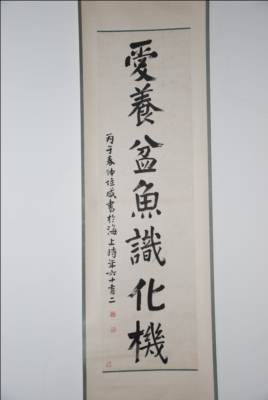 愛養盆魚識化機
丙子春仲書於海上時年六十有二